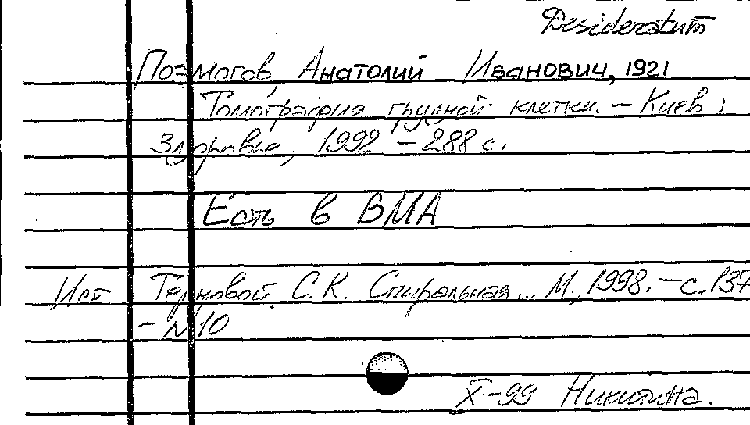 Desideratum
Позмогов, Анатолий Иванович, 1921
Томография грудной клетки. – Киев:
Здоровье, 1992 – 288 с.
Есть в ВМА
Ист Терновой С.К. Спиральная... М, 1998. – с. 137
– N 10
X-99 Никитина.